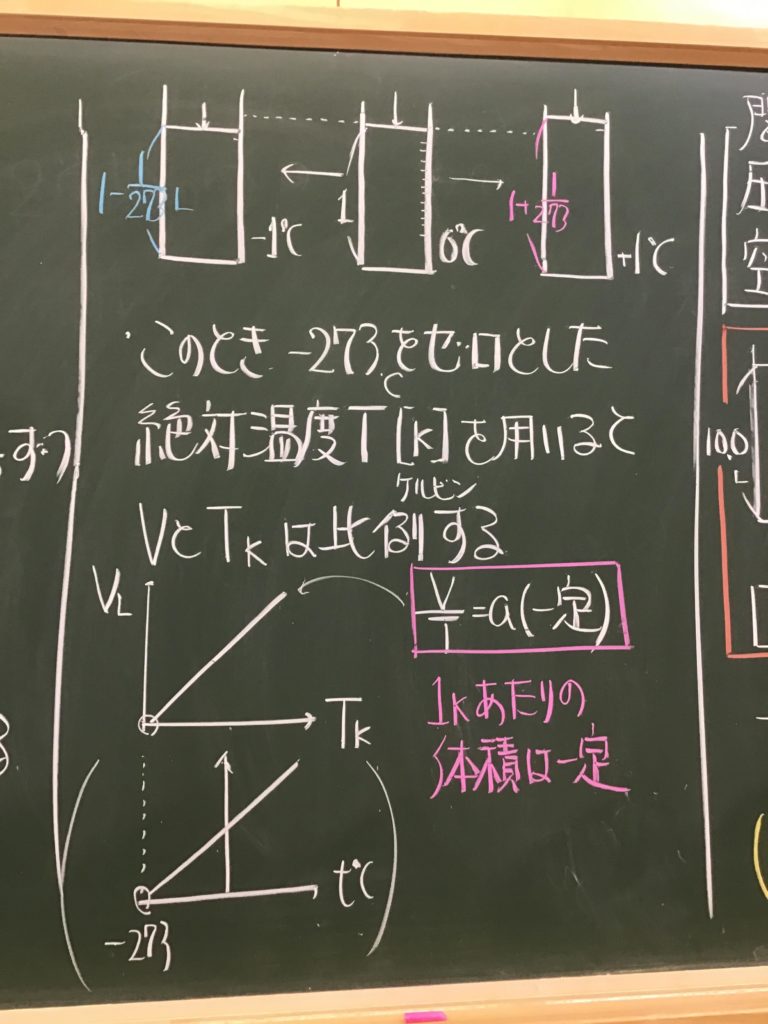 1-1/273 L
-1℃
1
0℃
1+1/273
+1℃
・このとき -273℃をゼロとした
絶対温度T[K]を用いると
ケルビン
VとTKは比例する
VL
TK
V/T=a(一定)
1Kあたりの
体積は一定
t℃
-273
ずつ
圧
空
10.0
L